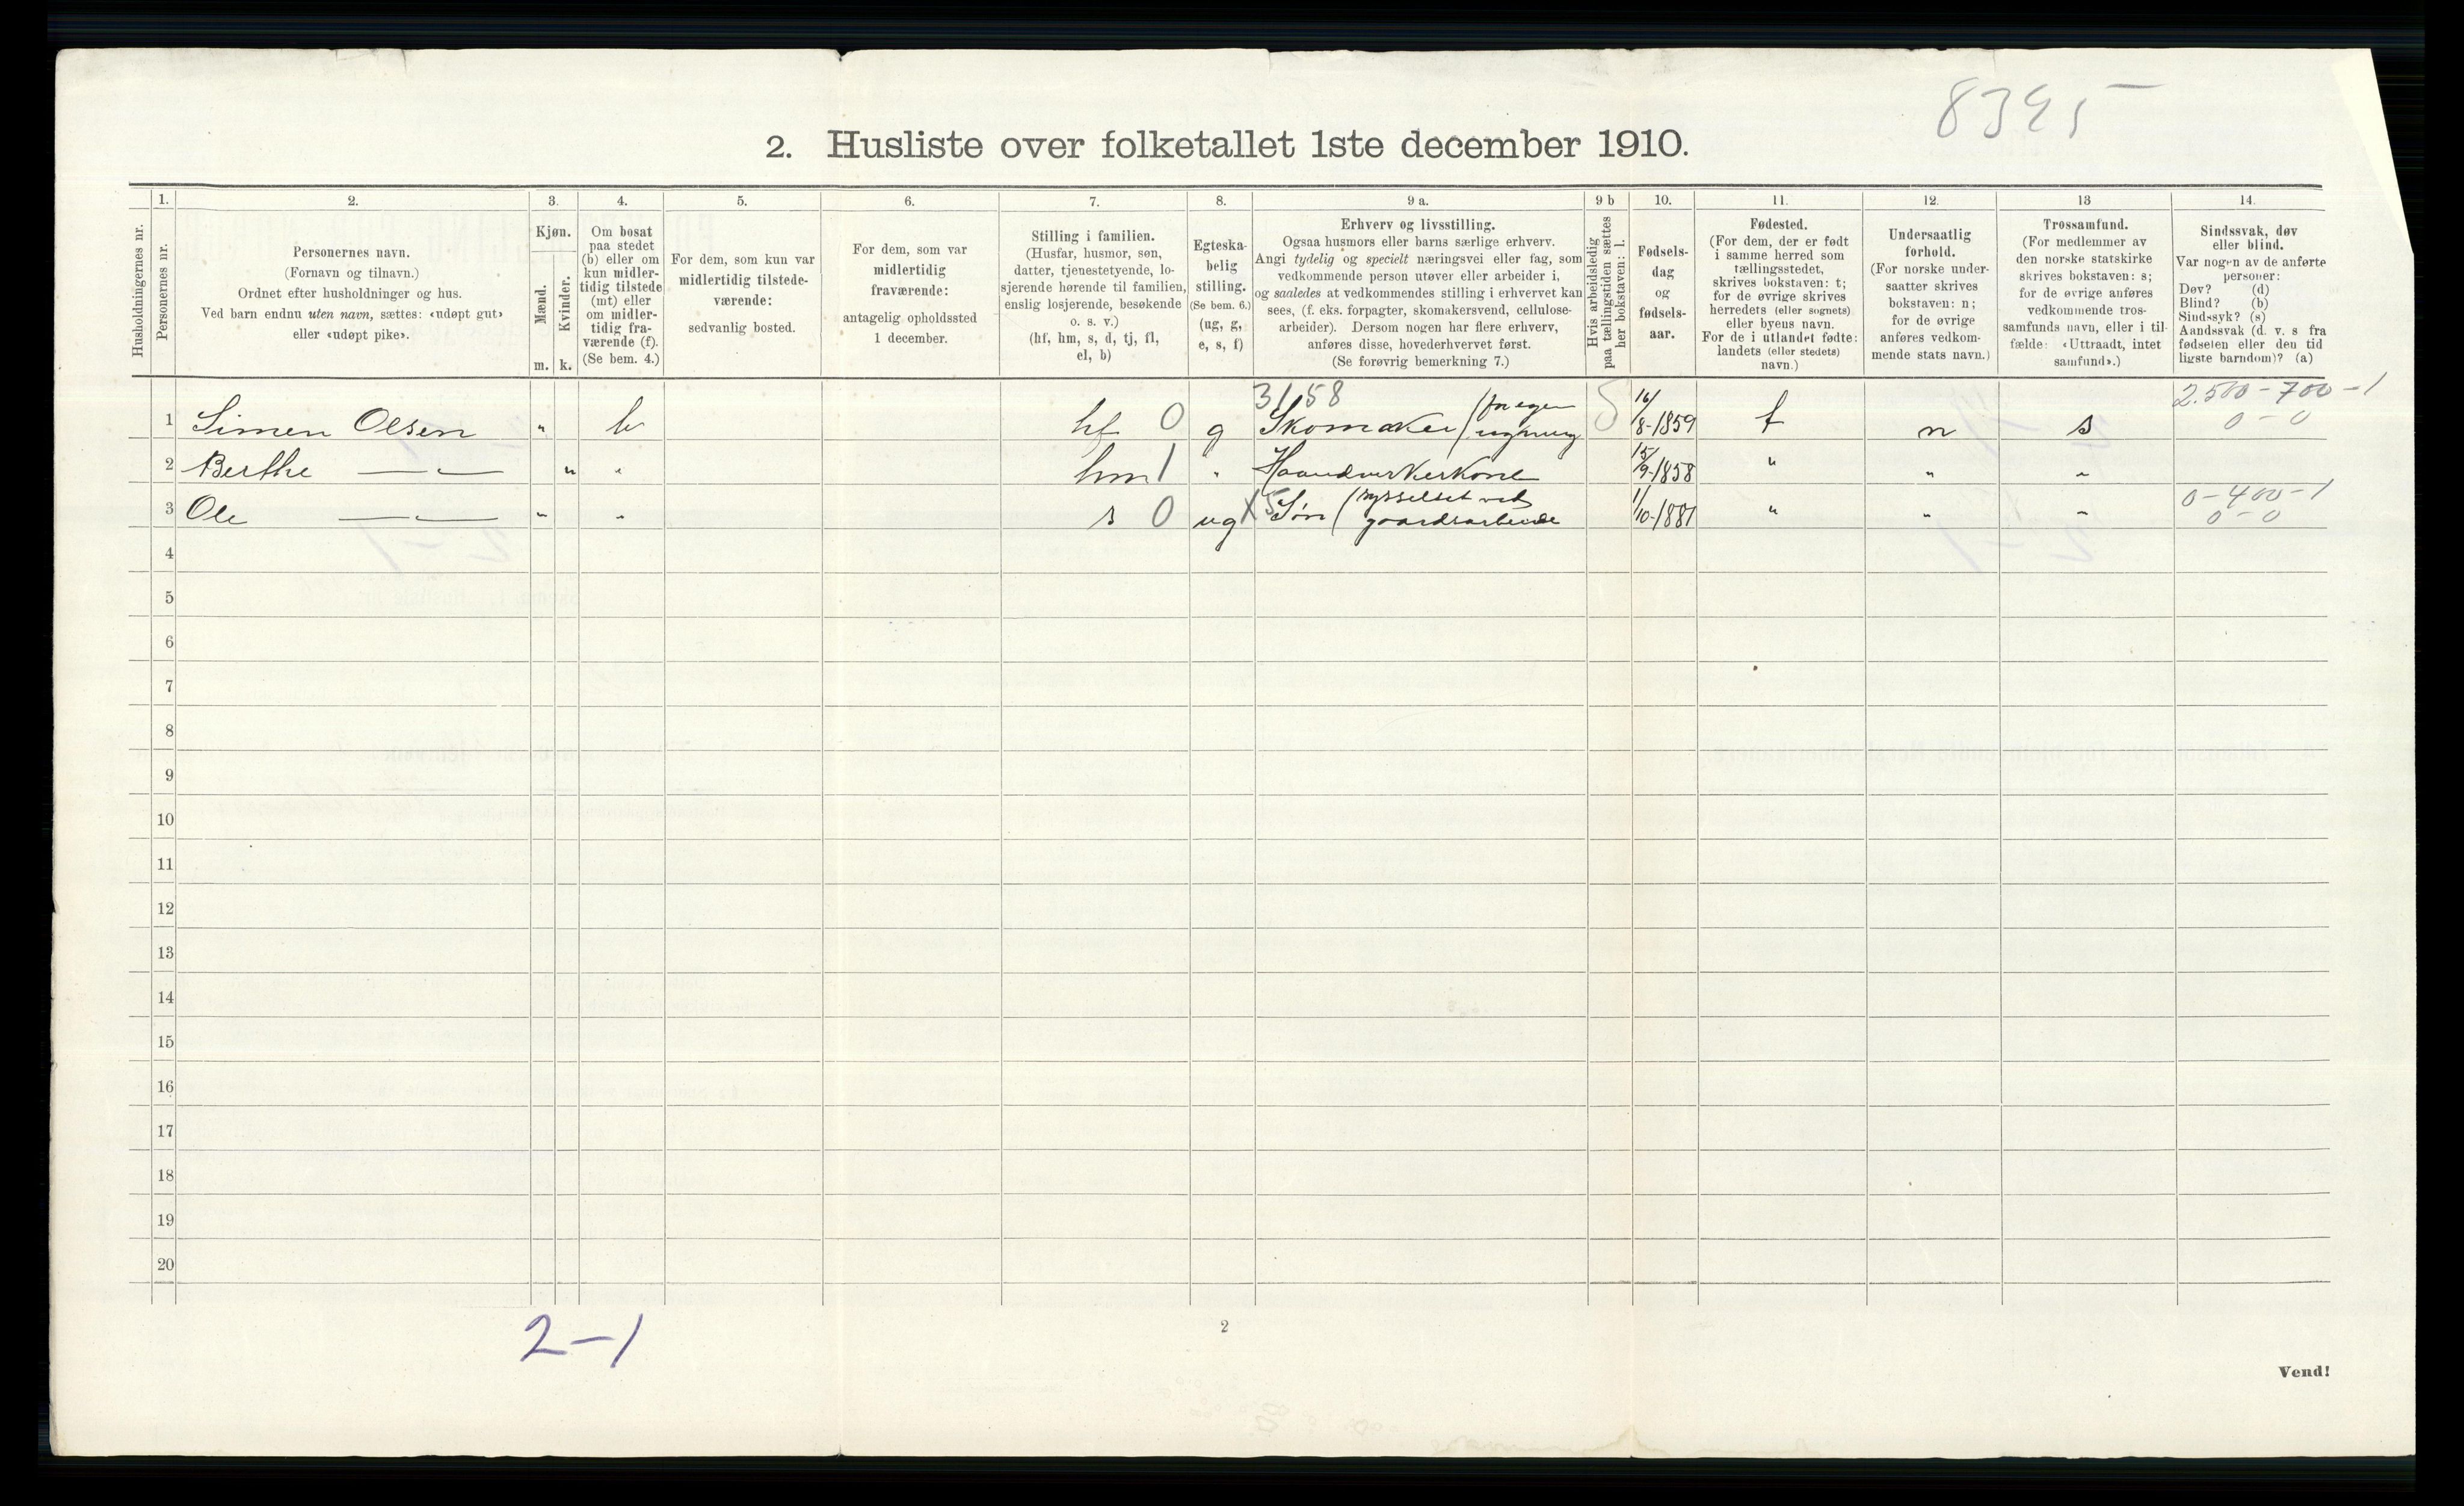 8395
2. Husliste over folketallet 1ste december 1910.
Husholdningernes nr.
1.
Personernes nr.
2.
Personernes navn.
(Fornavn og tilnavn.)
Ordnet efter husholdninger og hus.
Ved barn endnu uten navn, sættes: «udøpt gut»
eller «udøpt pike».
3.
Kjøn.
Mænd.
Kvinder.
m. k.
4.
Om bosat
paa stedet
(b) eller om
kun midler-
tidig tilstede
(mt) eller
om midler-
tidig fra-
værende (f).
(Se bem. 4.)
5.
For dem, som kun var
midlertidig tilstede-
værende:
sedvanlig bosted.
6.
For dem, som var
midlertidig
fraværende:
antagelig opholdssted
1 december.
7.
Stilling i familien.
(Husfar, husmor, søn,
datter, tjenestetyende, lo-
sjerende hørende til familien,
enslig losjerende, besøkende
o. s. v.)
(hf, hm, s, d, tj, fl,
el, b)
8.
Egteska-
belig
stilling.
(Se bem. 6.)
(ug, g,
e, s, f)
9 a.
Erhverv og livsstilling.
Ogsaa husmors eller barns særlige erhverv.
Angi tydelig og specielt næringsvei eller fag, som
vedkommende person utøver eller arbeider i,
og saaledes at vedkommendes stilling i erhvervet kan
sees, (f. eks. forpagter, skomakersvend, cellulose-
arbeider). Dersom nogen har flere erhverv,
anføres disse, hovederhvervet først.
(Se forøvrig bemerkning 7.)
9 b
Hvis arbeidsledig
paa tællingstiden sættes
her bokstaven: l.
10.
Fødsels-
dag
og
fødsels-
aar.
11.
Fødested.
(For dem, der er født
i samme herred som
tællingsstedet,
skrives bokstaven: t;
for de øvrige skrives
herredets (eller sognets)
eller byens navn.
For de i utlandet fødte:
landets (eller stedets)
navn.)
12.
Undersaatlig
forhold.
(For norske under-
saatter skrives
bokstaven: n;
for de øvrige
anføres vedkom-
mende stats navn.)
13
Trossamfund.
(For medlemmer av
den norske statskirke
skrives bokstaven: s;
for de øvrige anføres
vedkommende tros-
samfunds navn, eller i til-
fælde: «Uttraadt, intet
samfund».)
14.
Sindssvak, døv
eller blind.
Var nogen av de anførte
personer:
Døv? (d)
Blind? (b)
Sindssyk? (s)
Aandssvak (d. v. s fra
fødselen eller den tid
ligste barndom)? (a)
31/58 2.500-700-1
1 Simen Olsen " b hf 0 g Skomaker (for egen 16/8-1859 t n s 0-0
2 Berthe —"— " " hm 1 " Haandverkerkone 15/9-1858 " " "
3 Ole —"— " " s 0 ug X5 Søn (sysselset ved 1/10-1881 " " " 0-400-1
gaardsarbeide 0-0
4
5
6
7
8
9
10
11
12
13
14
15
16
17
18
19
20
2-1
2
Vend!